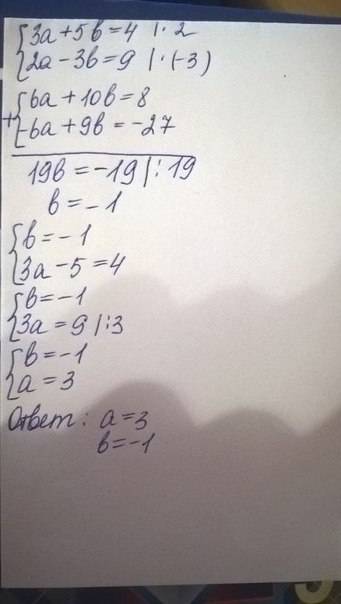 {3a+5b=4 |·2
{2a-3b=9 |·(-3)
+{6a+10b=8
{-6a+9b=-27
19b=-19|:19
b=-1
{b=-1
{3a-5=4
{b=-1
{3a=9|:3
{b=-1
{a=3
Ответ: a=3
b=-1